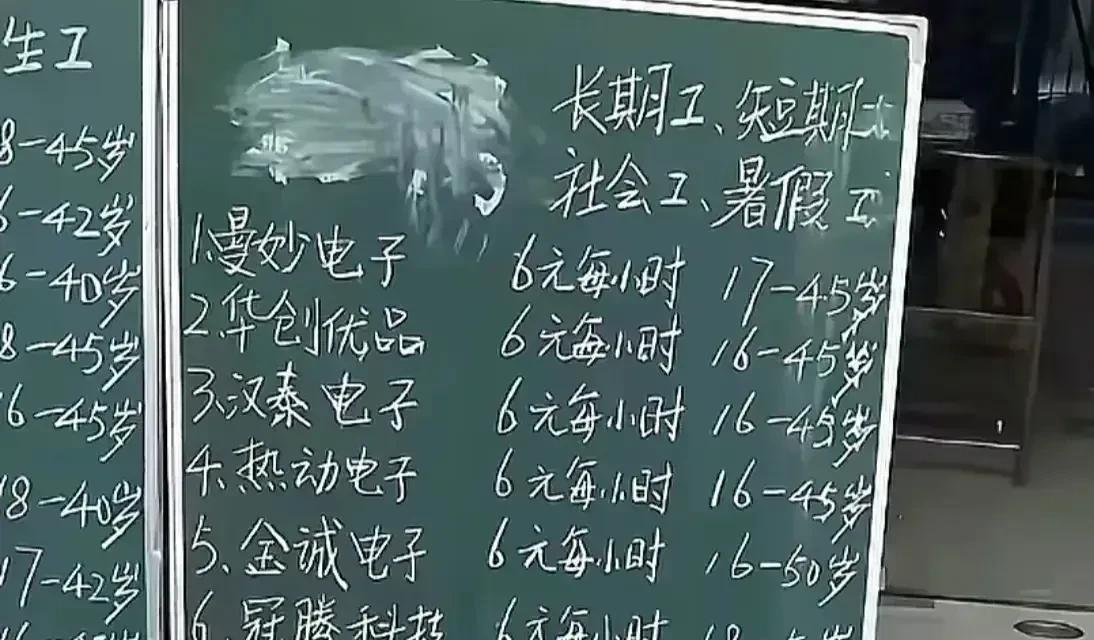 生工
8-45岁
6-42岁
6-40岁
8-45岁
6-45岁
18-40岁
17-42岁
长期工、短期工
社会工、暑假工
1.曼妙电子 6元每小时 17-45岁
2.华创优品 6元每小时 16-45岁
3.汉泰电子 6元每小时 16-45岁
4.热动电子 6元每小时 16-45岁
5、金诚电子 6元每小时 16-50岁
6、冠腾科技 6元每小时